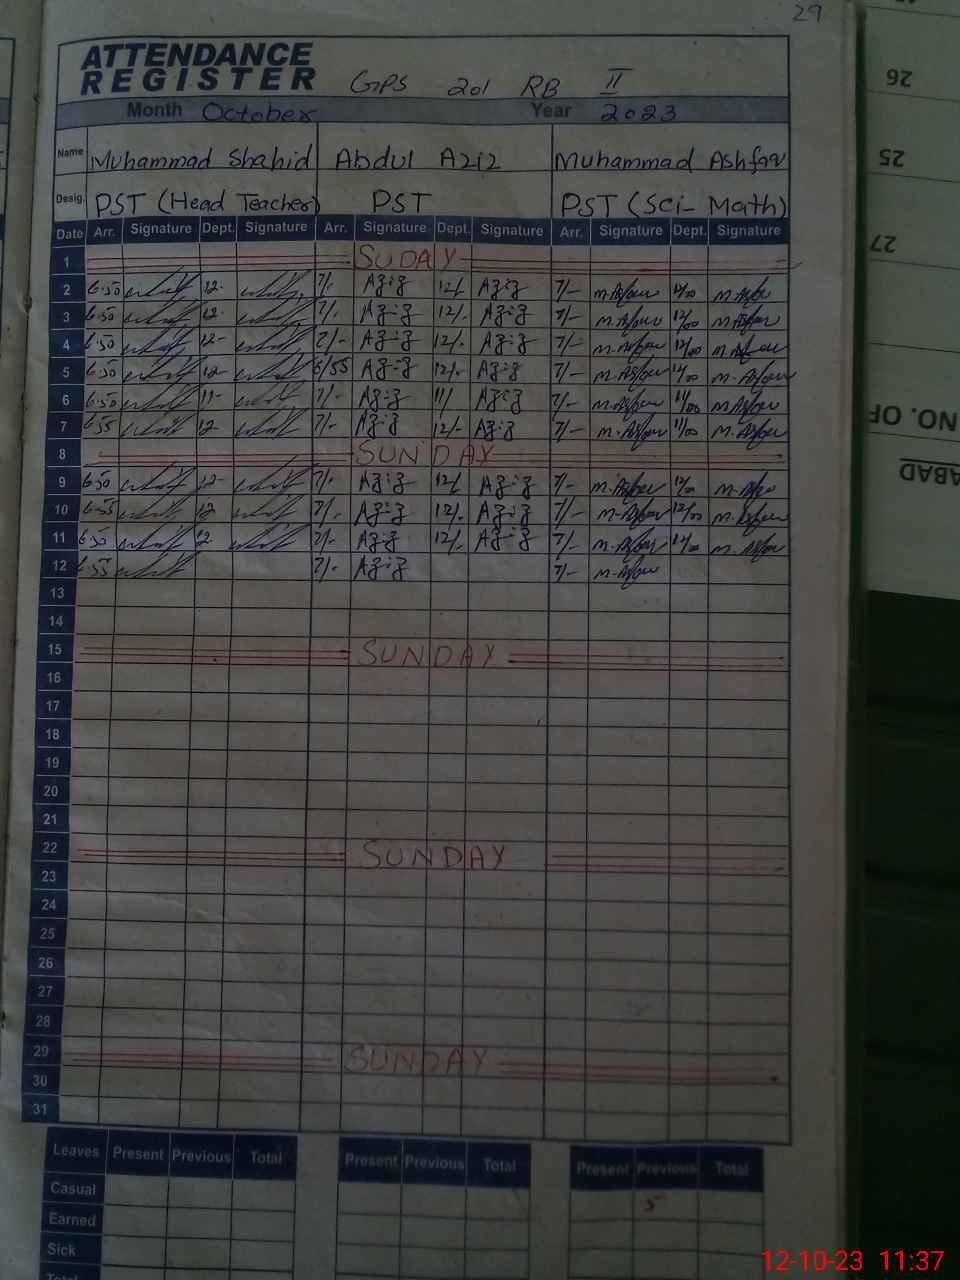 29
ATTENDANCE
REGISTER GPS 201 RB II
Month October Year 2023
Name Muhammad Shahid Abdul Aziz Muhammad Ashfaq
Desig. PST (Head Teacher) PST PST (Sci- Math)
Date Arr. Signature Dept. Signature Arr. Signature Dept. Signature Arr. Signature Dept. Signature
1 SUDAY
2 6:50 12- 7/- Aziz 12/ Aziz 7/- 12/00
3 6:50 12- 7/- Aziz 12/- Aziz 7/- 12/00
4 6:50 12- 7/- Aziz 12/- Aziz 7/- 12/00
5 6:50 12- 6/55 Aziz 12/- Aziz 7/- 12/00
6 6:50 11- 7/- Aziz 11/ Aziz 7/- 11/00
7 6:55 12 7/- Aziz 12/- Aziz 7/- 11/00
8 SUNDAY
9 6:50 12- 7/- Aziz 12/ Aziz 7/- 12/00
10 6:55 12 7/- Aziz 12/- Aziz 7/- 12/00
11 6:50 12 7/- Aziz 12/- Aziz 7/- 12/00
12 6:55 7/- Aziz 7/-
13
14
15 SUNDAY
16
17
18
19
20
21
22 SUNDAY
23
24
25
26
27
28
29 SUNDAY
30
31
Leaves Present Previous Total Present Previous Total Present Previous Total
Casual 5
Earned
Sick
Total
26
25
27
NO. OF
ABAD
12-10-23 11:37